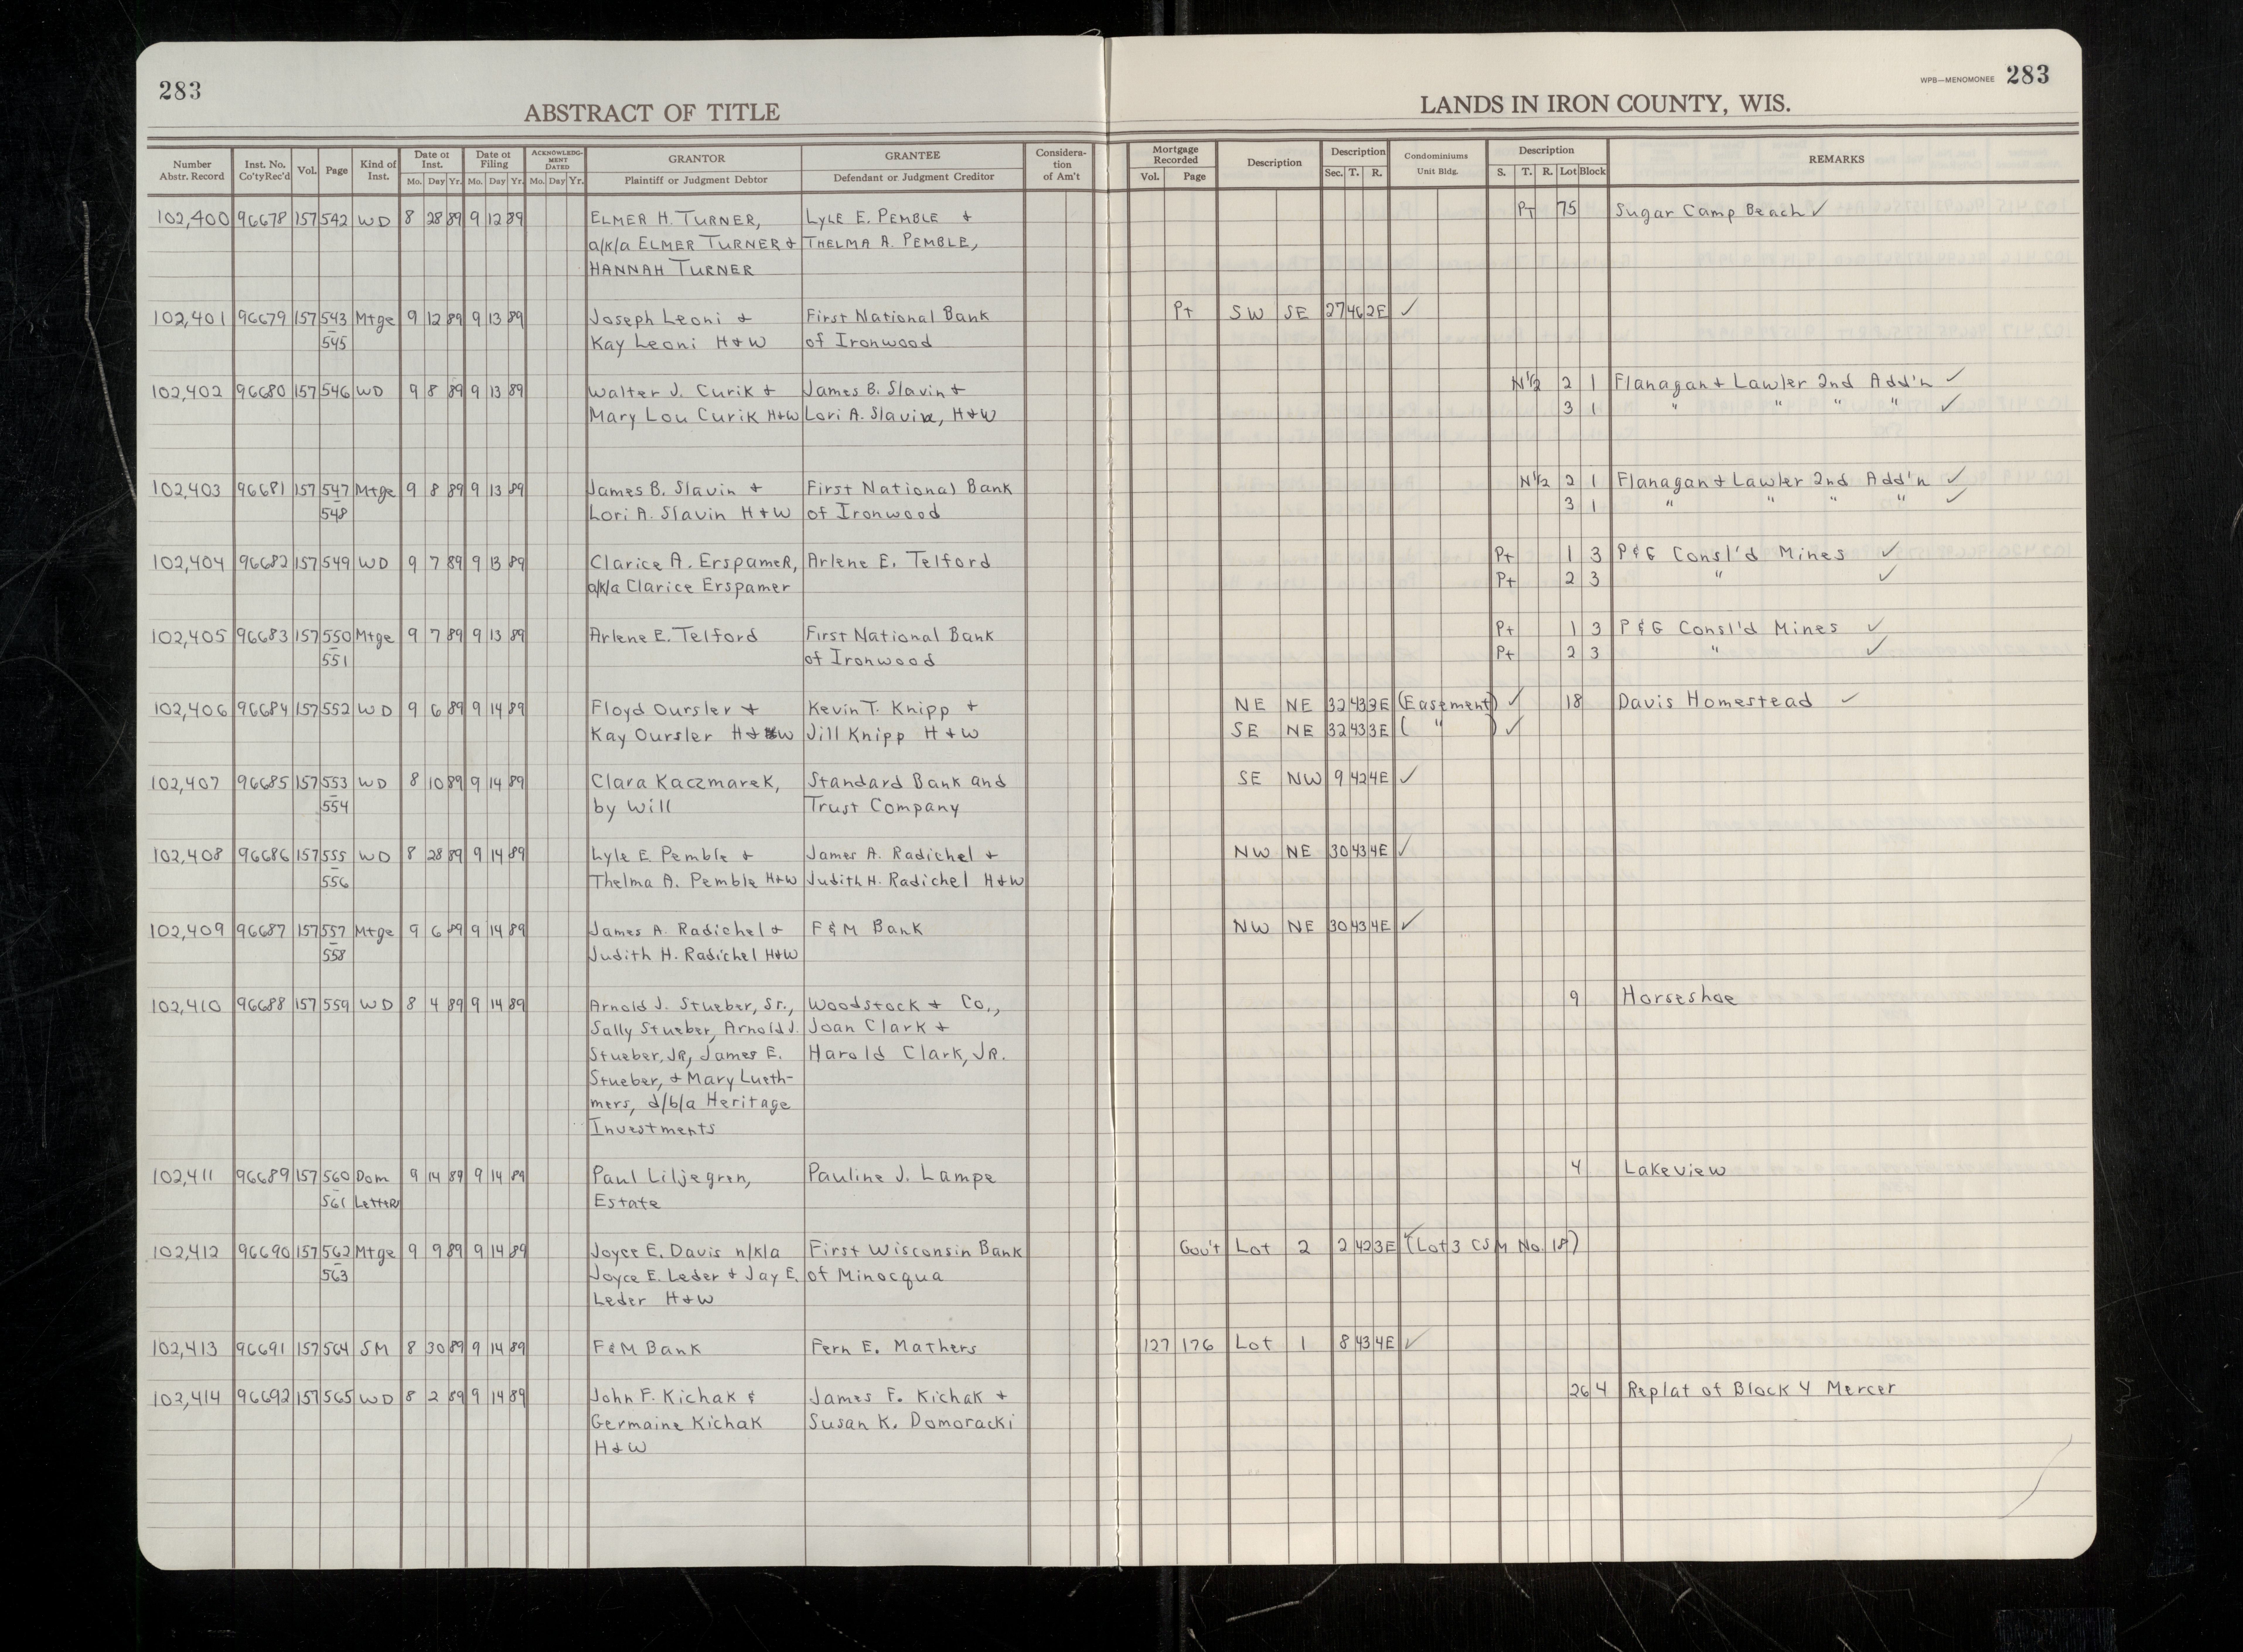 283
ABSTRACT OF TITLE
LANDS IN IRON COUNTY, WIS.
WPB—MENOMONEE 283
Number Abstr. Record Inst. No. Co'ty Rec'd Vol. Page Kind of Inst. Date of Inst. Mo. Day Yr. Date of Filing Mo. Day Yr. ACKNOWLEDGMENT DATED Mo. Day Yr. GRANTOR Plaintiff or Judgment Debtor GRANTEE Defendant or Judgment Creditor Consideration of Am't Mortgage Recorded Vol. Page Description Description Sec. T. R. Condominiums Unit Bldg. Description S. T. R. Lot Block REMARKS
102,400 96678 157 542 WD 8 28 89 9 12 89 ELMER H. TURNER, LYLE E. PEMBLE & PT 75 Sugar Camp Beach ✓
a/k/a ELMER TURNER & THELMA A. PEMBLE,
HANNAH TURNER
102,401 96679 157 543 Mtge 9 12 89 9 13 89 Joseph Leoni & First National Bank Pt SW SE 27 46 2E ✓
– 545 Kay Leoni H&W of Ironwood
102,402 96680 157 546 WD 9 8 89 9 13 89 Walter J. Curik & James B. Slavin & N½ 2 1 Flanagan & Lawler 2nd Add'n ✓
Mary Lou Curik H&W Lori A. Slavin, H&W 3 1 " " " " ✓
102,403 96681 157 547 Mtge 9 8 89 9 13 89 James B. Slavin & First National Bank N½ 2 1 Flanagan & Lawler 2nd Add'n ✓
– 548 Lori A. Slavin H&W of Ironwood 3 1 " " " " ✓
102,404 96682 157 549 WD 9 7 89 9 13 89 Clarice A. ErspameR, Arlene E. Telford Pt 1 3 P&G Consl'd Mines ✓
a/k/a Clarice Erspamer Pt 2 3 " ✓
102,405 96683 157 550 Mtge 9 7 89 9 13 89 Arlene E. Telford First National Bank Pt 1 3 P&G Consl'd Mines ✓
– 551 of Ironwood Pt 2 3 " ✓
102,406 96684 157 552 WD 9 6 89 9 14 89 Floyd Oursler & Kevin T. Knipp & NE NE 32 43 3E (Easement) ✓ 18 Davis Homestead ✓
Kay Oursler H&W Jill Knipp H&W SE NE 32 43 3E ( " ) ✓
102,407 96685 157 553 WD 8 10 89 9 14 89 Clara Kaczmarek, Standard Bank and SE NW 9 42 4E ✓
– 554 by Will Trust Company
102,408 96686 157 555 WD 8 28 89 9 14 89 Lyle E. Pemble & James A. Radichel & NW NE 30 43 4E ✓
– 556 Thelma A. Pemble H&W Judith H. Radichel H&W
102,409 96687 157 557 Mtge 9 6 89 9 14 89 James A. Radichel & F&M Bank NW NE 30 43 4E ✓
– 558 Judith H. Radichel H&W
102,410 96688 157 559 WD 8 4 89 9 14 89 Arnold J. Stueber, Sr., Woodstock & Co., 9 Horseshoe
Sally Stueber, Arnold J. Joan Clark &
Stueber, JR, James E. Harold Clark, JR.
Stueber, & Mary Lueth-
mers, d/b/a Heritage
Investments
102,411 96689 157 560 Dom 9 14 89 9 14 89 Paul Liljegren, Pauline J. Lampe 4 Lakeview
– 561 LetteR Estate
102,412 96690 157 562 Mtge 9 9 89 9 14 89 Joyce E. Davis n/k/a First Wisconsin Bank Gov't Lot 2 2 42 3E (Lot 3 CSM No. 18)
– 563 Joyce E. Leder & Jay E. of Minocqua
Leder H&W
102,413 96691 157 564 SM 8 30 89 9 14 89 F&M Bank Fern E. Mathers 127 176 Lot 1 8 43 4E ✓
102,414 96692 157 565 WD 8 2 89 9 14 89 John F. Kichak & James F. Kichak & 26 4 Replat of Block 4 Mercer
Germaine Kichak Susan K. Domoracki
H&W